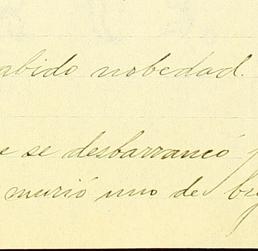 abido nobedad.
e se desbarrancó
murió uno de